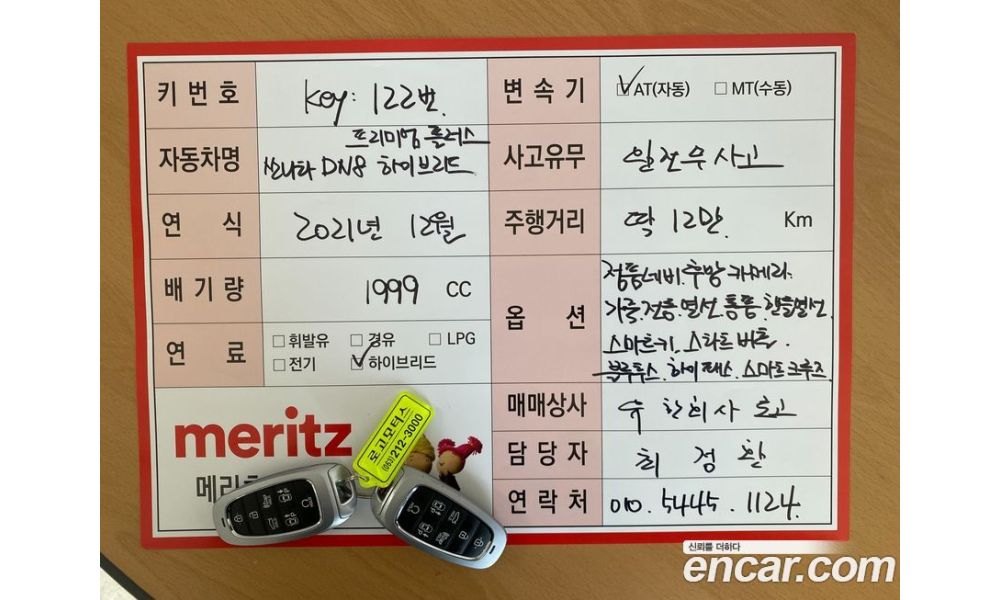 키 번 호
Key: 122번
변 속 기
AT(자동) MT(수동)
자동차명
프리미엄 플러스
쏘나타 DN8 하이브리드
사고유무
일전무사고
연 식
2021년 12월
주행거리
딱 12만 Km
배 기 량
1999 CC
옵 션
정품네비. 후방 카메라.
가죽. 전동. 열선. 통풍. 핸들열선.
스마트키. 스타트 버튼.
블루투스. 하이패스. 스마트 크루즈.
연 료
휘발유 경유 LPG
전기 하이브리드
매매상사
유한회사 로고
담 당 자
최 정 환
연 락 처
010. 5445. 1124.
meritz
메리츠
로고모터스
(063) 212-3000
신뢰를 더하다
encar.com